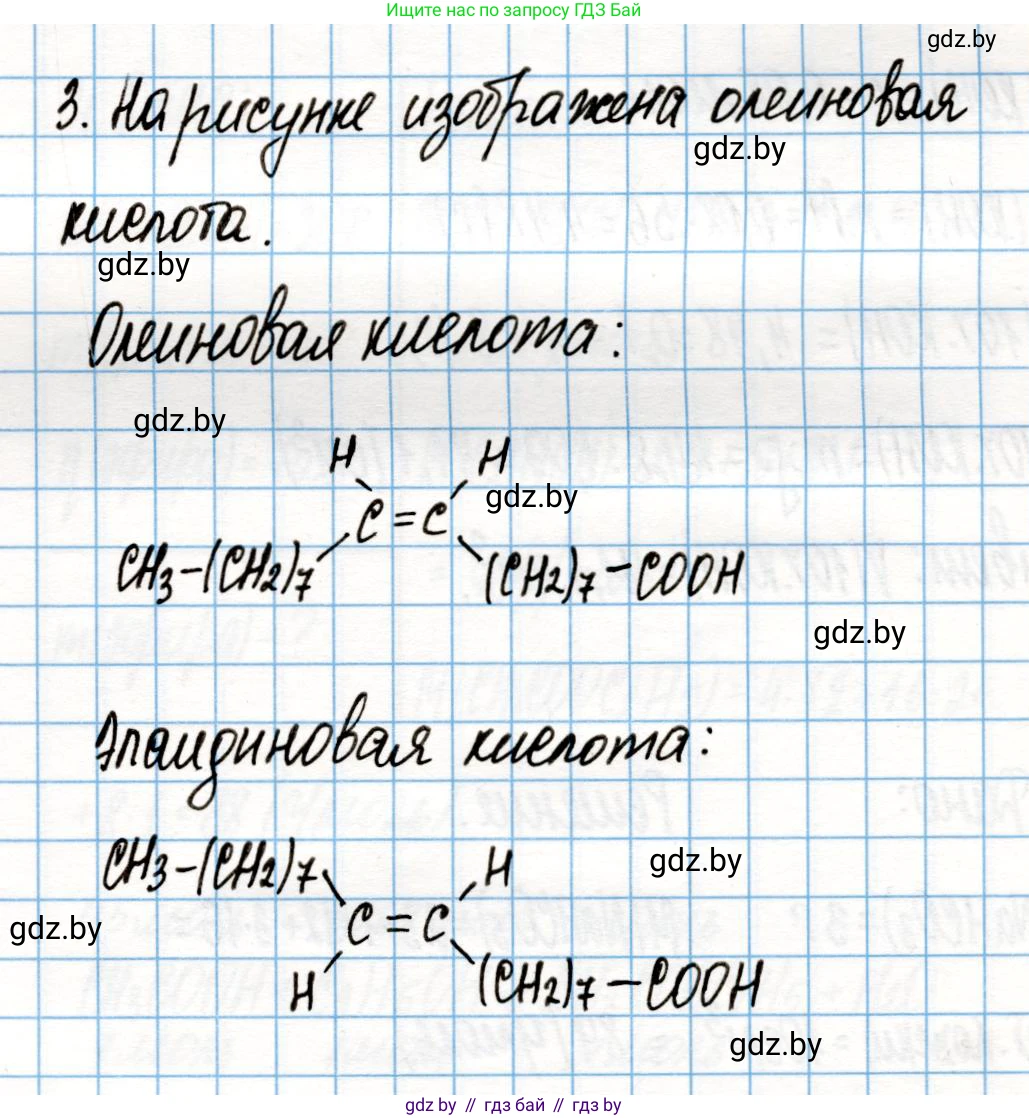 Ищите нас по запросу ГДЗ Бай
gdz.by
3. На рисунке изображена олеиновая
gdz.by
кислота.
gdz.by
Олеиновая кислота:
gdz.by
H H
gdz.by
C = C
CH3-(CH2)7 (CH2)7-COOH
gdz.by
Элаидиновая кислота:
CH3-(CH2)7 H
gdz.by
C = C
gdz.by
H (CH2)7-COOH
gdz.by
gdz.by // гдз бай // гдз by